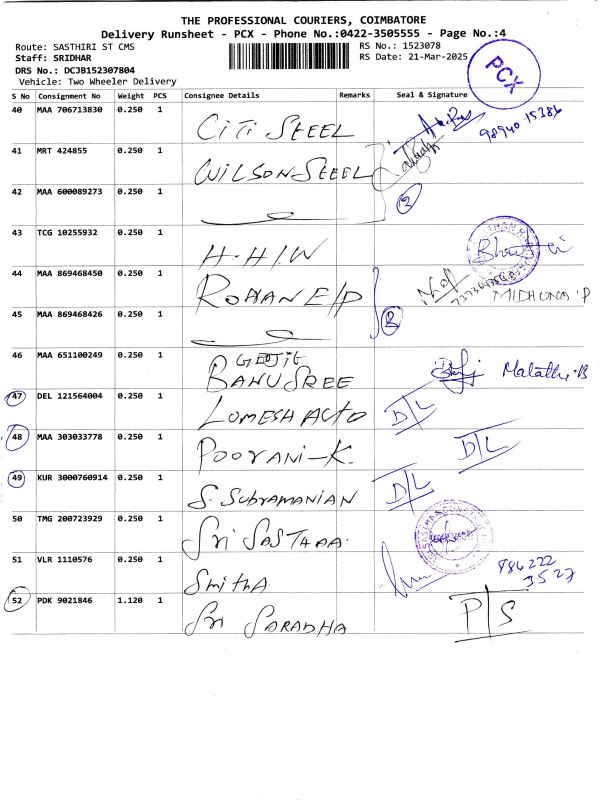 THE PROFESSIONAL COURIERS, COIMBATORE
Delivery Runsheet - PCX - Phone No.:0422-3505555 - Page No.:4
Route: SASTHIRI ST CMS RS No.: 1523078
Staff: SRIDHAR RS Date: 21-Mar-2025
DRS No.: DCJB152307804
Vehicle: Two Wheeler Delivery
PCX
S No Consignment No Weight PCS Consignee Details Remarks Seal & Signature
40 MAA 706713830 0.250 1 CITI STEEL 98940 15386
41 MRT 424855 0.250 1 WILSON STEEL
42 MAA 600089273 0.250 1 2
43 TCG 10255932 0.250 1 H-H/W
44 MAA 869468450 0.250 1 ROHAN E/P MIDHUNA.P
45 MAA 869468426 0.250 1 2
46 MAA 651100249 0.250 1 GEOJIT
BANUSREE Malathi.B
47 DEL 121564004 0.250 1 LOMESH AUTO D/L
48 MAA 303033778 0.250 1 POORANI-K. D/L
49 KUR 3000760914 0.250 1 S. SUBRAMANIAN D/L
50 TMG 200723929 0.250 1 Sri SASTHAA
51 VLR 1110576 0.250 1 SmithA 986222
3527
52 PDK 9021846 1.120 1 Sri SARADHA P/S